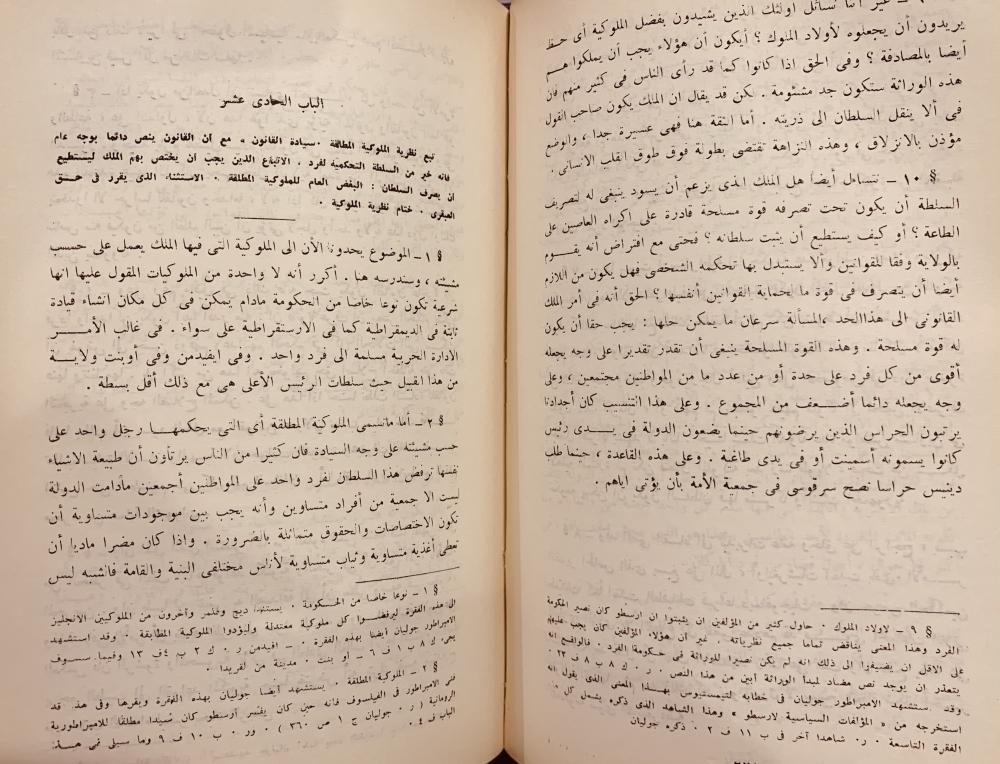 ٩ ـ غير أننا نسائل أولئك الذين يشيدون بفضل الملوكية أى حظ
يريدون أن يجعلوه لأولاد الملوك ؟ أيكون أن هؤلاء يجب أن يملكوا هم
أيضا بالمصادفة ؟ وفى الحق اذا كانوا كما قد رأى الناس فى كثير منهم فان
هذه الوراثة ستكون جد مشئومة . لكن قد يقال ان الملك يكون صاحب القول
فى ألا ينقل السلطان الى ذريته . أما الثقة هنا فهى عسيرة جدا ، والوضع
مؤذن بالانزلاق ، وهذه النزاهة تقتضى بطولة فوق طوق القلب الانسانى .
§ ١٠ ـ نتساءل أيضا هل الملك الذى يزعم أن يسود ينبغى له لتصريف
السلطة أن يكون تحت تصرفه قوة مسلحة قادرة على اكراه العاصين على
الطاعة ؟ أو كيف يستطيع أن يثبت سلطانه ؟ فحتى مع افتراض أنه يقوم
بالولاية وفقا للقوانين وألا يستبدل بها تحكمه الشخصى فهل يكون من اللازم
أيضا أن يتصرف فى قوة ما لحماية القوانين أنفسها ؟ الحق أنه فى أمر الملك
القانونى الى هذا الحد ،المسألة سرعان ما يمكن حلها : يجب حقا أن يكون
له قوة مسلحة . وهذه القوة المسلحة ينبغى أن تقدر تقديرا على وجه يجعله
أقوى من كل فرد على حدة أو من عدد ما من المواطنين مجتمعين ، وعلى
وجه يجعله دائما أضعف من المجموع . وعلى هذا التنسيب كان أجدادنا
يرتبون الحراس الذين يرضونهم حينما يضعون الدولة فى يدى رئيس
كانوا يسمونه أسمينت أو فى يدى طاغية . وعلى هذه القاعدة ، حينما طلب
دينيس حراسا نصح سرقوسى فى جمعية الأمة بأن يؤتى اياهم .
§ ٩ ـ لاولاد الملوك . حاول كثير من المؤلفين ان يثبتوا ان ارسطو كان نصير الحكومة
الفرد وهذا المعنى يناقض تماما جميع نظرياته . غير ان هؤلاء المؤلفين كان يجب عليهم
على الاقل ان يضيفوا الى ذلك انه لم يكن نصيرا للوراثة فى حكومة الفرد . فالواقع انه
يتعذر ان يوجد نص مضاد لمبدأ الوراثة أبين من هذا النص . ر . ك ٨ ب ٨ ف ٢٣ .
وقد استشهد الامبراطور جوليان فى خطابه لتيمستيوس بهذا المعنى الذى يقول انه
استخرجه من « المؤلفات السياسية لارسطو » وهذا الشاهد الذى ذكره يشمل كل
الفقرة التاسعة . ر. شاهدا آخر فى ب ١١ ف ٢ . ذكره جوليان
الباب الحادى عشر
تبع نظرية الملوكية المطلقة .سيادة القانون . مع أن القانون ينص دائما بوجه عام
فانه خير من السلطة التحكمية لفرد . الاتباع الذين يجب ان يختص بهم الملك ليستطيع
ان يصرف السلطان : البغض العام للملوكية المطلقة . الاستثناء الذى يقرر فى حق
العبقرى . ختام نظرية الملوكية .
§ ١ ـ الموضوع يحدونا الأن الى الملوكية التى فيها الملك يعمل على حسب
مشيئته ، وسندرسه هنا . أكرر أنه لا واحدة من الملوكيات المقول عليها انها
شرعية تكون نوعا خاصا من الحكومة مادام يمكن فى كل مكان انشاء قيادة
ثابتة فى الديمقراطية كما فى الارستقراطية على سواء . فى غالب الأمر
الادارة الحربية مسلمة الى فرد واحد . وفى ايفيدمن وفى أوبنت ولاية
من هذا القبيل حيث سلطات الرئيس الأعلى هى مع ذلك أقل بسطة .
§ ٢ ـ أما ماتسمى الملوكية المطلقة أى التى يحكمها رجل واحد على
حسب مشيئته على وجه السيادة فان كثيرا من الناس يرتأون أن طبيعة الاشياء
نفسها ترفض هذا السلطان لفرد واحد على المواطنين أجمعين مادامت الدولة
ليست الا جمعية من أفراد متساوين وأنه يجب بين موجودات متساوية أن
تكون الاختصاصات والحقوق متماثلة بالضرورة . واذا كان مضرا ماديا أن
تعطى أغذية متساوية وثياب متساوية لأناس مختلفى البنية والقامة فالشبه ليس
§ ١ ـ نوعا خاصا من الحكومة . يستشهد ديج وفلمر وآخرون من الملوكيين الانجليز
الى هذه الفقرة ليرفضوا كل ملوكية معتدلة وليؤدوا الملوكية المطابقة . وقد استشهد
الامبراطور جوليان أيضا بهذه الفقرة . ـ افيدمن ر . ك ٢ ب ٤ ف ١٣ وفيما سسوف
يجىء ك ٨ ب ١ ف ٦ ـ او بنت . مدينة من لقريدا .
§ ٢ ـ الملوكية المطلقة . يستشهد أيضا جوليان بهذه الفقرة ويقرها وفى هذا قد
فنى الامبراطور فى الفيلسوف فانه حين كان يفسر أرسطو كان سيدا مطلقا للامبراطورية
الرومانية ( ر . جوليان ج ١ ص ٣٦٠ ) . ور . ب ١٠ ف ٩ وما سبلى فى هذا
الباب ف ٤ .